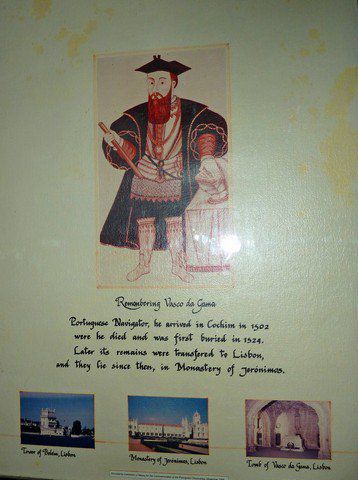 Remembering Vasco da Gama
Portuguese Navigator, he arrived in Cochim in 1502
were he died and was first buried in 1524.
Later its remains were transfered to Lisbon,
and they lie since then, in Monastery of Jerónimos.
Tower of Belém, Lisbon
Monastery of Jerónimos, Lisbon
Tomb of Vasco da Gama, Lisbon